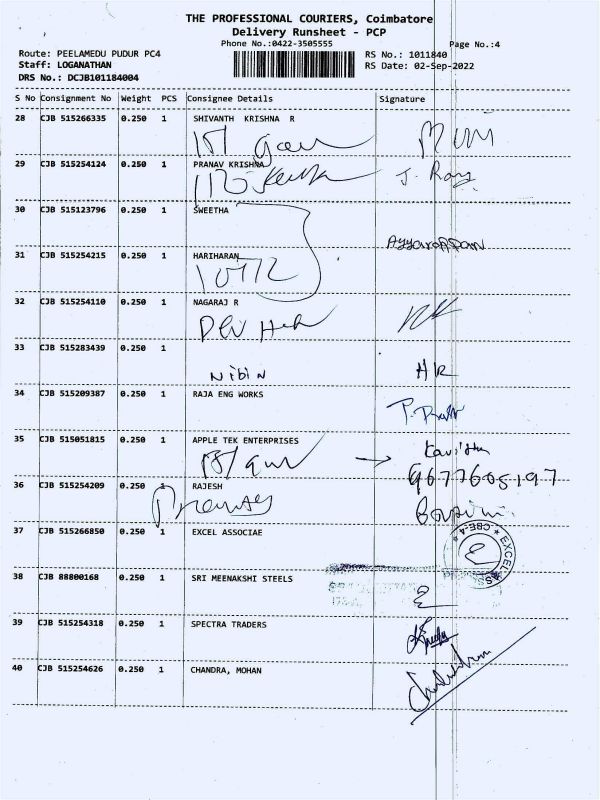 THE PROFESSIONAL COURIERS, Coimbatore
Delivery Runsheet - PCP
Phone No.:0422-3505555
Page No.:4
Route: PEELAMEDU PUDUR PC4
RS No.: 1011840
Staff: LOGANATHAN
RS Date: 02-Sep-2022
DRS No.: DCJB101184004
S No Consignment No Weight PCS Consignee Details Signature
28 CJB 515266335 0.250 1 SHIVANTH KRISHNA R
29 CJB 515254124 0.250 1 PRANAV KRISHNA
J. Roy
30 CJB 515123796 0.250 1 SWEETHA
Ayyarappan
31 CJB 515254215 0.250 1 HARIHARAN
32 CJB 515254110 0.250 1 NAGARAJ R
33 CJB 515283439 0.250 1
Nibin HR
34 CJB 515209387 0.250 1 RAJA ENG WORKS
35 CJB 515051815 0.250 1 APPLE TEK ENTERPRISES
Kavitha
9677605197
36 CJB 515254209 0.250 1 RAJESH
37 CJB 515266850 0.250 1 EXCEL ASSOCIAE
38 CJB 88800168 0.250 1 SRI MEENAKSHI STEELS
39 CJB 515254318 0.250 1 SPECTRA TRADERS
40 CJB 515254626 0.250 1 CHANDRA, MOHAN